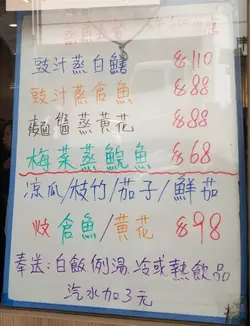 豉汁蒸白鱔 $110
豉汁蒸倉魚 $88
麵醬蒸黃花 $88
梅菜蒸鯇魚 $68
涼瓜/枝竹/茄子/鮮茄
炆倉魚/黃花 $98
奉送:白飯例湯.冷或熱飲品
汽水加3元